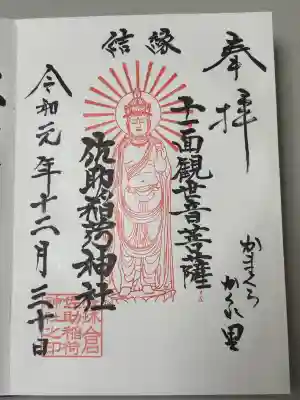 奉拝
かまくら
かくれ里
結縁
十一面観世音菩薩
佐助稲荷神社
令和元年十二月三十日
鎌倉
佐助稲荷
神社之印